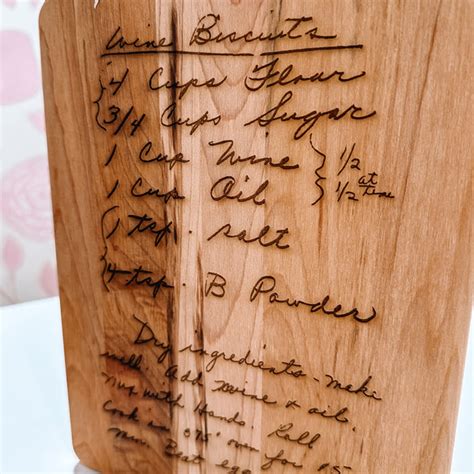 Wine Biscuits
4 Cups Flour
3/4 Cups Sugar
1 Cup Wine } 1/2 at
1 Cup Oil } 1/2 time
1 tsp. salt
4 tsp. B Powder
Dry ingredients - make
well. Add wine & oil.
mix with Hands. Roll
Cook in 375° oven for